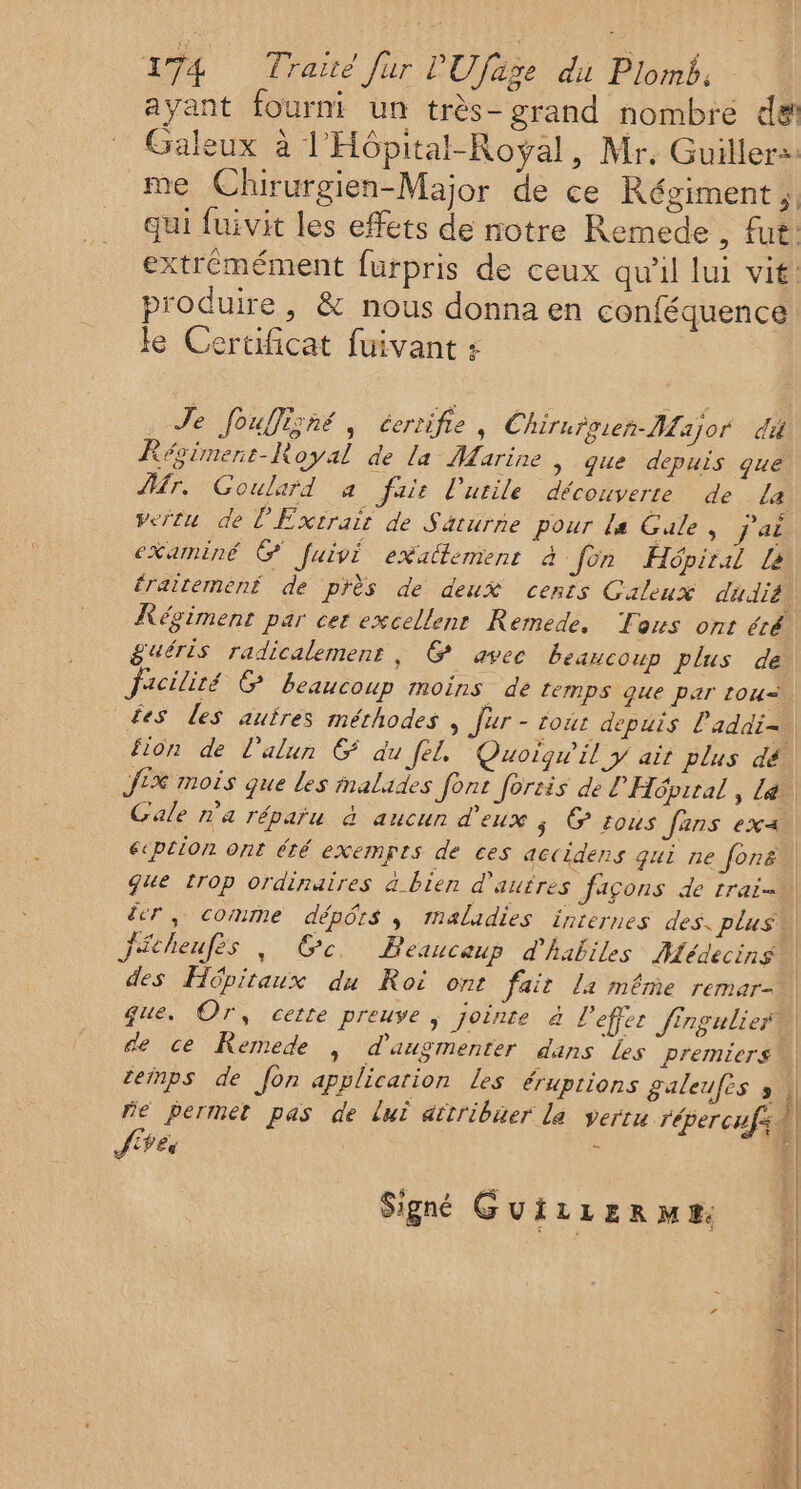 174 Traité ſur l'Uſage du Plomb.
ayant fourni un très-grand nombre de
Galeux à l'Hôpital-Royal, Mr. Guiller-
me Chirurgien-Major de ce Régiment,
qui ſuivit les effets de notre Remede, fut
extrêmément ſurpris de ceux qu'il lui vit
produire, & nous donna en conſéquence
le Certificat ſuivant :
Je ſouſſigné, certifie, Chirurgien-Major du
Régiment-Royal de la Marine, que depuis que
Mr. Goulard a fait l'utile découverte de la
vertu de l'Extrait de Saturne pour la Gale, j'ai
examiné & ſuivi exactement à ſon Hôpital le
traitement de près de deux cents Galeux dudit
Régiment par cet excellent Remede. Tous ont été
guéris radicalement, & avec beaucoup plus de
facilité & beaucoup moins de temps que par tou-
tes les autres méthodes, ſur-tout depuis l'addi-
tion de l'alun & du ſel. Quoiqu'il y ait plus de
ſix mois que les malades ſont ſortis de l'Hôpital, la
Gale n'a réparu à aucun d'eux ; & tous ſans ex-
ception ont été exempts de ces accidens qui ne ſont
que trop ordinaires à bien d'autres façons de trai-
ter, comme dépôts, maladies internes des plus
fâcheuſes, &c. Beaucoup d'habiles Médecins
des Hôpitaux du Roi ont fait la même remar-
que. Or, cette preuve, jointe à l'effet ſingulier
de ce Remede, d'augmenter dans les premiers
temps de ſon application les éruptions galeuſes,
ne permet pas de lui attribuer la vertu répercuſ-
ſive.
Signé GUILLERME.